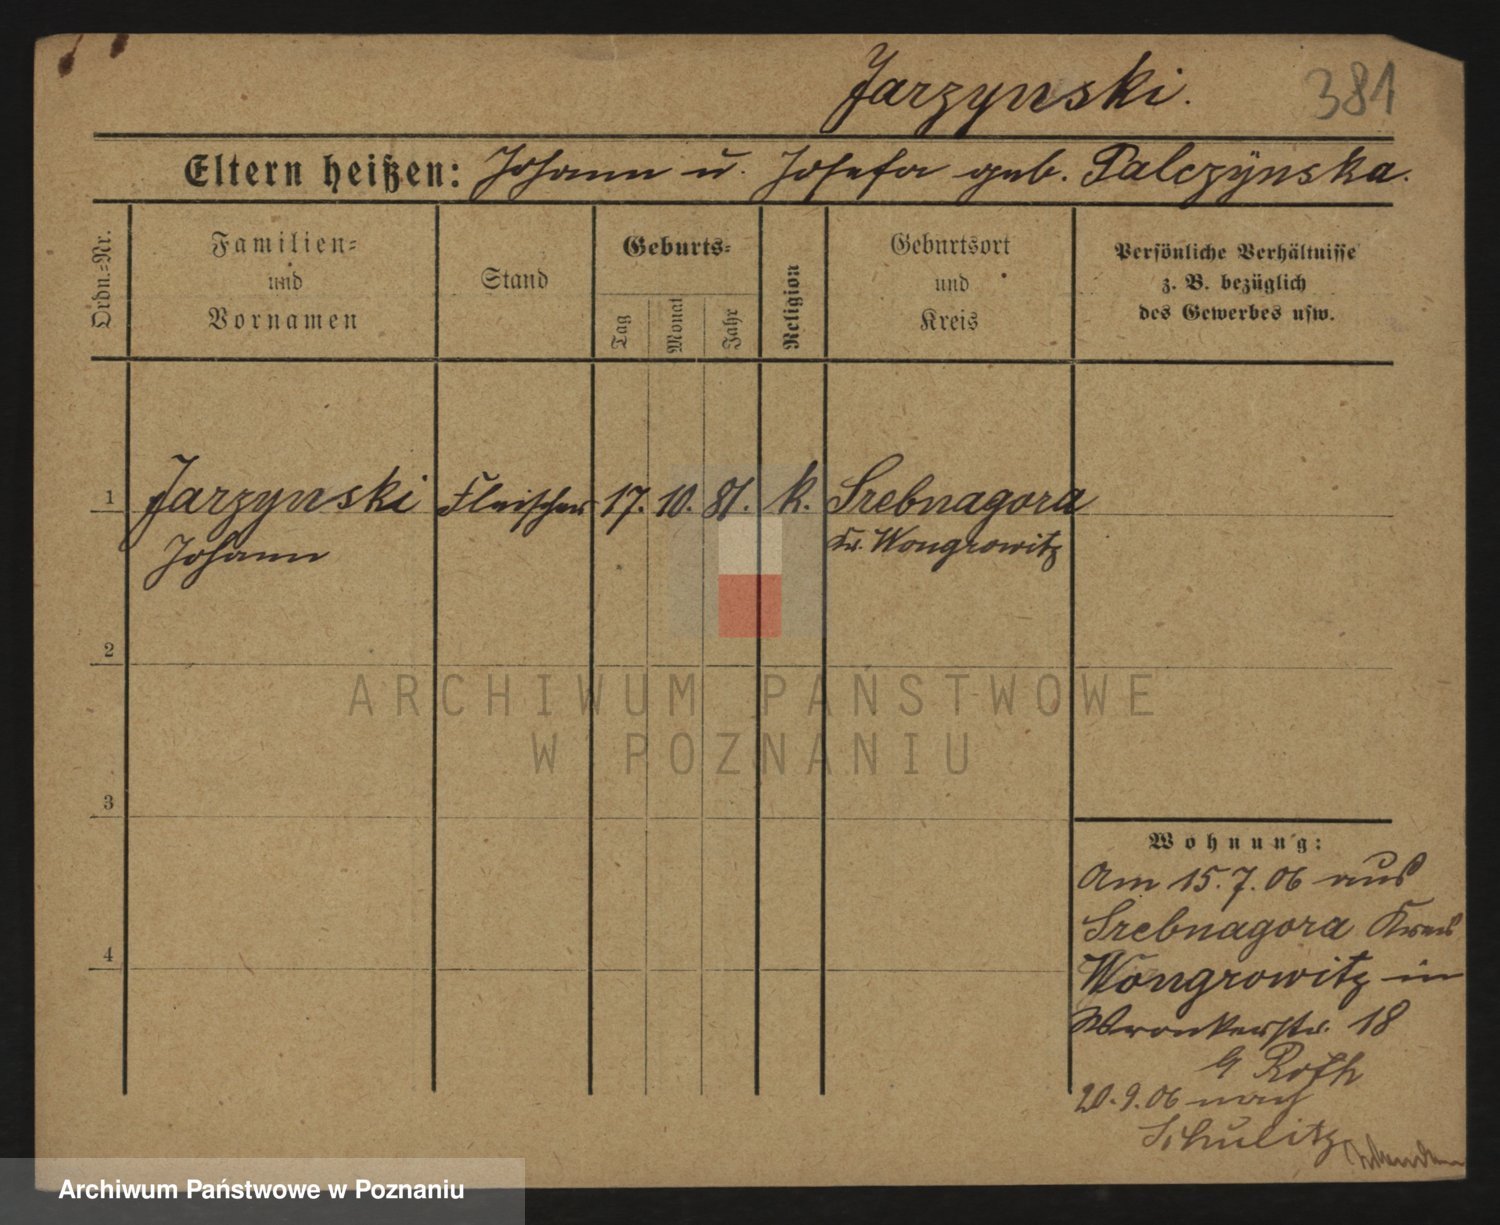 Jarzynski.
381
Eltern heißen: Johann u. Josefa geb. Palczÿnska.
Ordn.=Nr.
Familien=
und
Vornamen
Stand
Geburts=
Tag
Monat
Jahr
Religion
Geburtsort
und
Kreis
Persönliche Verhältnisse
z. B. bezüglich
des Gewerbes usw.
1 Jarzynski Fleischer 17. 10. 81. k. Srebnagora
Johann Kr. Wongrowitz
2
3
4
Wohnung:
Am 15.7.06 aus
Srebnagora Kreis
Wongrowitz in
Wronkerstr. 18
b Roth
20.9.06 nach
Schulitz
ARCHIWUM PAŃSTWOWE
W POZNANIU
Archiwum Państwowe w Poznaniu